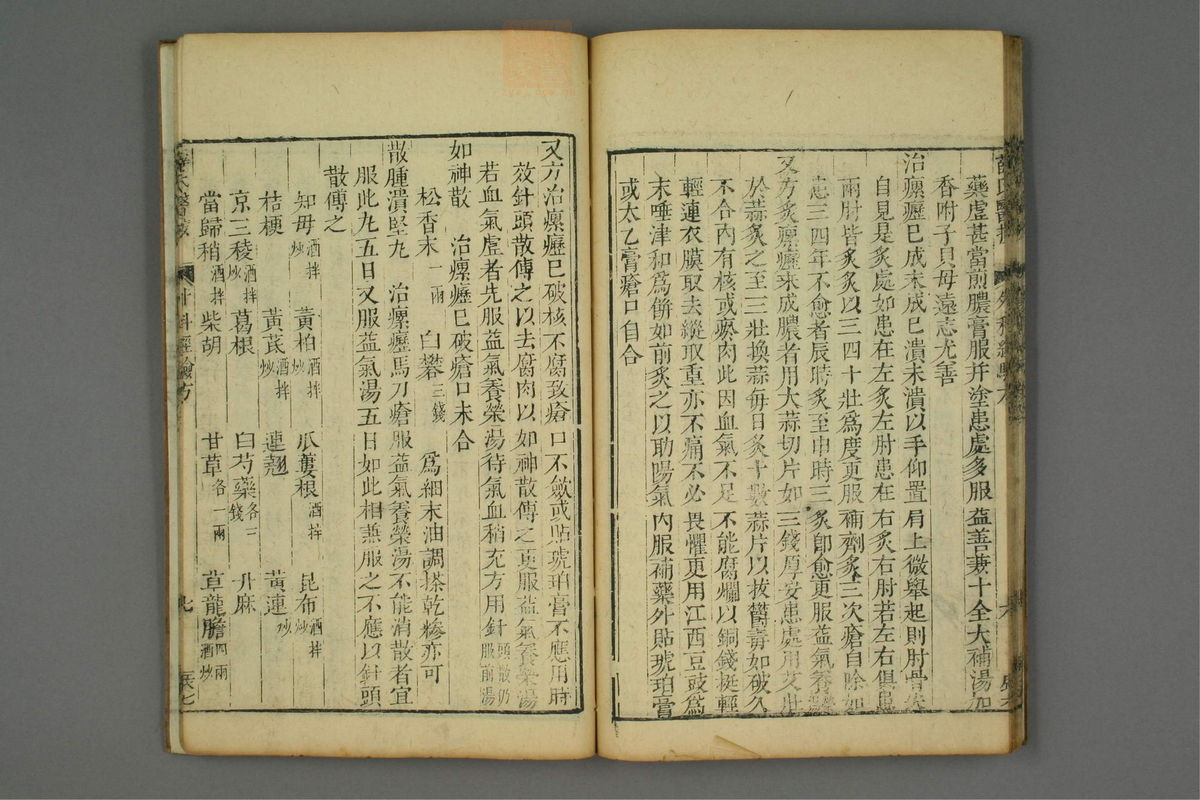 薛氏醫按
虛甚當煎膿膏服并塗患處多服益善兼十全大補湯加
香附子貝母遠志尤善
治瘰癧已成未成已潰未潰以手仰置肩上微舉起則肘骨
自見是灸處如患在左灸左肘患在右灸右肘若左右俱患
兩肘皆灸灸以三四十壯為度更服補劑灸三次瘡自除如
患三四年不愈者辰時灸至申時三灸即愈更服益氣養榮湯
又方灸瘰癧未成膿者用大蒜切片如三錢厚安患處用艾壯
於蒜灸之至三壯換蒜每日灸十數蒜片以拔鬱毒如破久
不合內有核或瘀肉此因血氣不足不能腐爛以銅錢挺輕
輕連衣膜取去縱取重亦不痛不必畏懼更用江西豆豉為
末唾津和為餅如前灸之以助陽氣內服補藥外貼琥珀膏
或太乙膏瘡口自合
又方治瘰癧已破核不腐致瘡口不斂或貼琥珀膏不應用時
效針頭散傅之以去腐肉以如神散傅之更服益氣養榮湯
若血氣虛者先服益氣養榮湯待氣血稍充方用針頭散仍服前湯
如神散 治瘰癧已破瘡口未合
松香末一兩 白礬三錢 為細末油調搽乾糝亦可
散腫潰堅丸 治瘰癧馬刀瘡服益氣養榮湯不能消散者宜
服此丸五日又服益氣湯五日如此相兼服之不應以針頭
散傅之
知母酒拌炒 黃柏酒拌炒 瓜蔞根酒拌 昆布酒拌炒
桔梗 黃芪酒拌炒 連翹 黃連炒
京三稜酒拌炒 葛根 白芍藥各二錢 升麻
當歸稍酒拌 柴胡 甘草各一兩 草龍膽四兩酒炒
薛氏醫按 經驗方 七